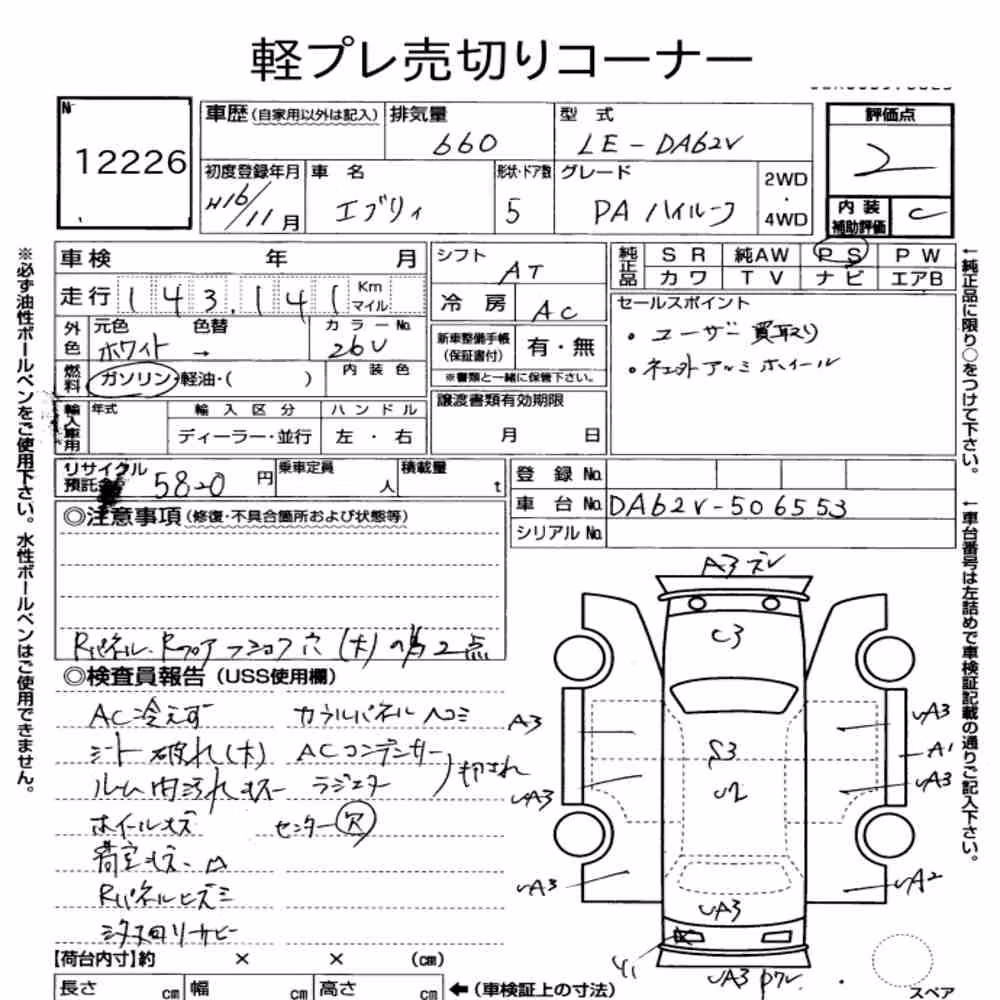 軽プレ売切りコーナー
№ 12226
車歴 (自家用以外は記入) 排気量 660 型式 LE-DA62V 評価点 2
初度登録年月 H16/11月 車名 エブリィ 形状・ドア数 5 グレード PA ハイルーフ 2WD・4WD 内装補助評価 C
車検 年 月 シフト AT 純正品 SR 純AW PS PW
走行 143,141 Km マイル 冷房 AC カワ TV ナビ エアB
外色 元色 ホワイト 色替 → カラーNo. 26U 新車整備手帳(保証書付) 有・無 セールスポイント
※書類と一緒に保管下さい。
・ユーザー買取り
・社外アルミホイール
燃料 ガソリン・軽油・( ) 内装色
譲渡書類有効期限 月 日
輸入車用 年式 輸入区分 ハンドル
ディーラー・並行 左・右
リサイクル預託金 5820円 乗車定員 人 積載量 t 登録No.
車台No. DA62V-506553
シリアルNo.
◎注意事項 (修復・不具合箇所および状態等)
Rパネル・Rフロア フショク穴(大)の為2点
◎検査員報告 (USS使用欄)
AC冷えず カウルパネル凹コミ
シート破れ(大) ACコンデンサー
ラジエター 押され
ルーム内汚れキズ
ホイールキズ センター穴
荷室キズ・凹
Rパネルヒズミ
下回りサビ
【荷台内寸】約 × × (cm)
長さ cm 幅 cm 高さ cm ←(車検証上の寸法)
A3 ズレ
C3
A3
UA3
A1
S3
UA3
UA3
U2
UA3
UA2
UA3
Y1
UA3 ワレ
スペア
※必ず油性ボールペンをご使用下さい。水性ボールペンはご使用できません。
←純正品に限り○をつけて下さい。
←車台番号は左詰めで車検証記載の通りご記入下さい。